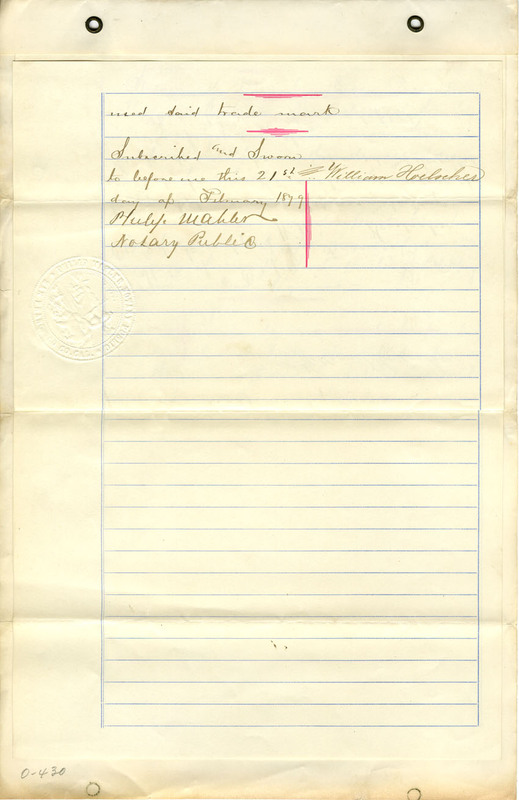 used said trade mark
Subscribed and Sworn
to before me this 21st William Hoelscher
day of February 1879
Philip Mahler
Notary Public
O-430